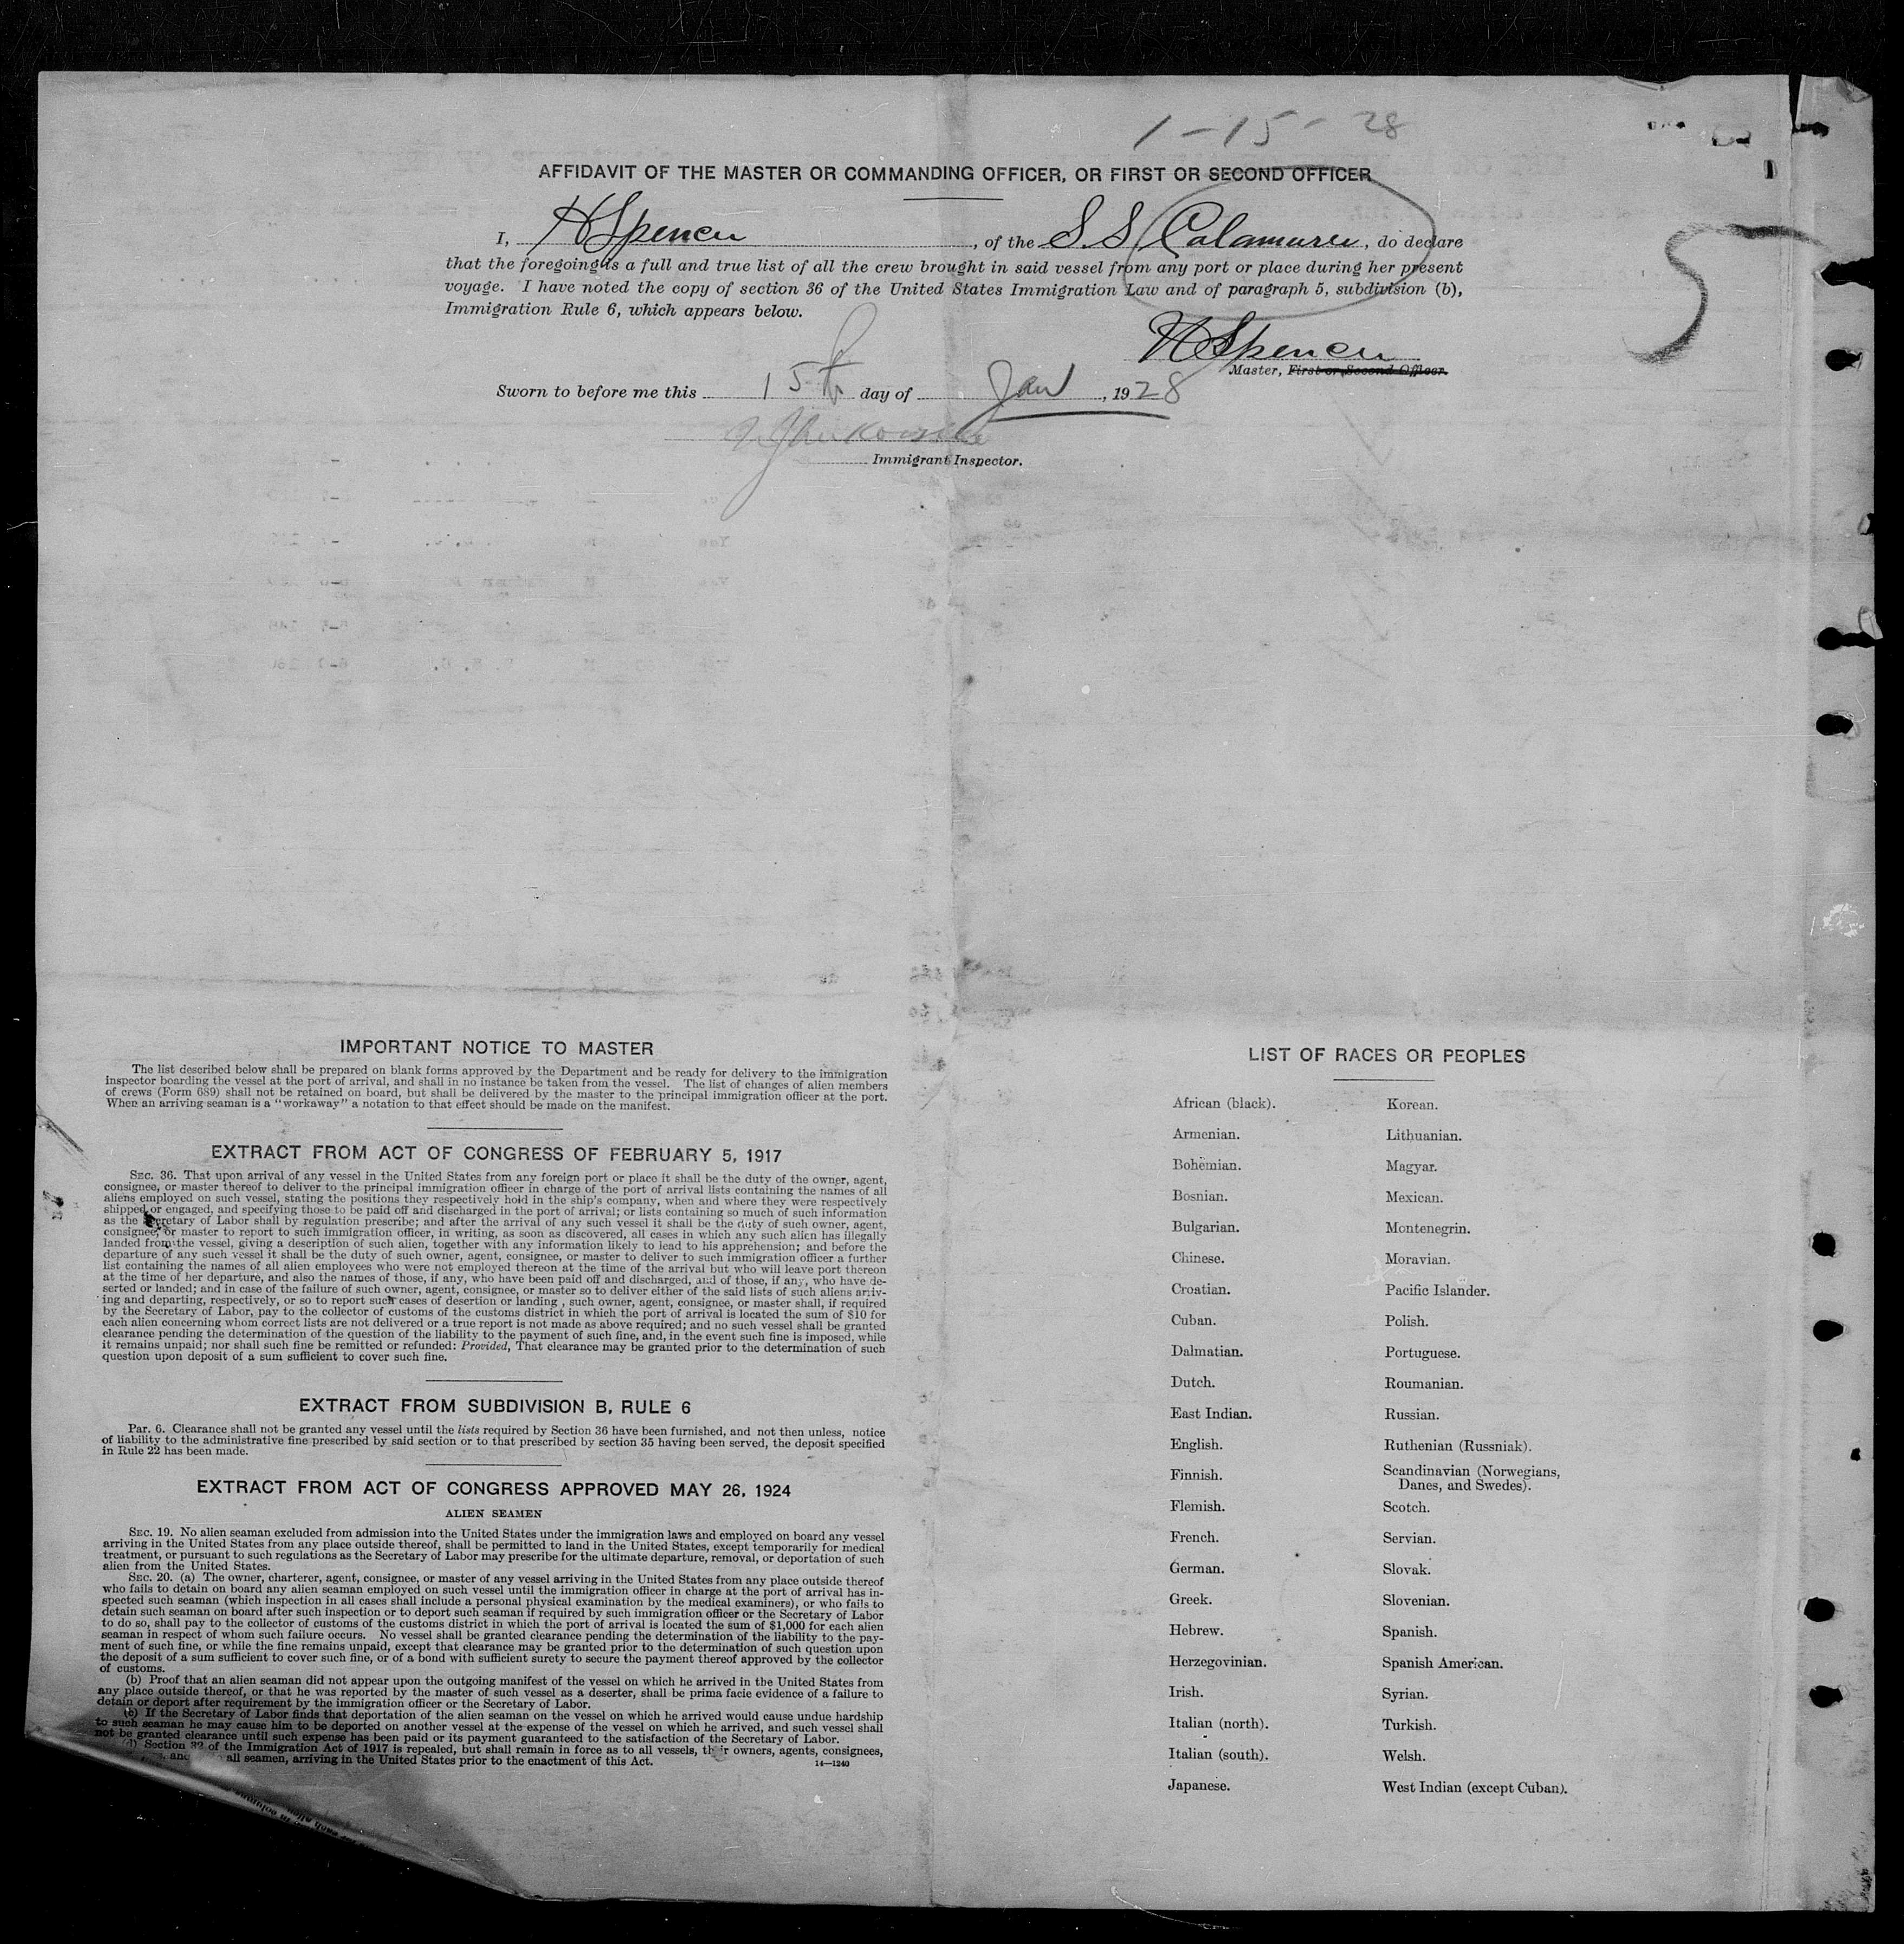 1-15-28
AFFIDAVIT OF THE MASTER OR COMMANDING OFFICER, OR FIRST OR SECOND OFFICER
I, H Spencer, of the S. S. Calamares, do declare
that the foregoing is a full and true list of all the crew brought in said vessel from any port or place during her present
voyage. I have noted the copy of section 36 of the United States Immigration Law and of paragraph 5, subdivision (b),
Immigration Rule 6, which appears below.
5
H Spencer
Master, First or Second Officer.
Sworn to before me this 15th day of Jan, 1928
Immigrant Inspector.
IMPORTANT NOTICE TO MASTER
The list described below shall be prepared on blank forms approved by the Department and be ready for delivery to the immigration
inspector boarding the vessel at the port of arrival, and shall in no instance be taken from the vessel. The list of changes of alien members
of crews (Form 689) shall not be retained on board, but shall be delivered by the master to the principal immigration officer at the port.
When an arriving seaman is a "workaway" a notation to that effect should be made on the manifest.
EXTRACT FROM ACT OF CONGRESS OF FEBRUARY 5, 1917
SEC. 36. That upon arrival of any vessel in the United States from any foreign port or place it shall be the duty of the owner, agent,
consignee, or master thereof to deliver to the principal immigration officer in charge of the port of arrival lists containing the names of all
aliens employed on such vessel, stating the positions they respectively hold in the ship's company, when and where they were respectively
shipped or engaged, and specifying those to be paid off and discharged in the port of arrival; or lists containing so much of such information
as the Secretary of Labor shall by regulation prescribe; and after the arrival of any such vessel it shall be the duty of such owner, agent,
consignee, or master to report to such immigration officer, in writing, as soon as discovered, all cases in which any such alien has illegally
landed from the vessel, giving a description of such alien, together with any information likely to lead to his apprehension; and before the
departure of any such vessel it shall be the duty of such owner, agent, consignee, or master to deliver to such immigration officer a further
list containing the names of all alien employees who were not employed thereon at the time of the arrival but who will leave port thereon
at the time of her departure, and also the names of those, if any, who have been paid off and discharged, and of those, if any, who have de-
serted or landed; and in case of the failure of such owner, agent, consignee, or master so to deliver either of the said lists of such aliens arriv-
ing and departing, respectively, or so to report such cases of desertion or landing, such owner, agent, consignee, or master shall, if required
by the Secretary of Labor, pay to the collector of customs of the customs district in which the port of arrival is located the sum of $10 for
each alien concerning whom correct lists are not delivered or a true report is not made as above required; and no such vessel shall be granted
clearance pending the determination of the question of the liability to the payment of such fine, and, in the event such fine is imposed, while
it remains unpaid; nor shall such fine be remitted or refunded: Provided, That clearance may be granted prior to the determination of such
question upon deposit of a sum sufficient to cover such fine.
EXTRACT FROM SUBDIVISION B, RULE 6
Par. 6. Clearance shall not be granted any vessel until the lists required by Section 36 have been furnished, and not then unless, notice
of liability to the administrative fine prescribed by said section or to that prescribed by section 35 having been served, the deposit specified
in Rule 22 has been made.
EXTRACT FROM ACT OF CONGRESS APPROVED MAY 26, 1924
ALIEN SEAMEN
SEC. 19. No alien seaman excluded from admission into the United States under the immigration laws and employed on board any vessel
arriving in the United States from any place outside thereof, shall be permitted to land in the United States, except temporarily for medical
treatment, or pursuant to such regulations as the Secretary of Labor may prescribe for the ultimate departure, removal, or deportation of such
alien from the United States.
SEC. 20. (a) The owner, charterer, agent, consignee, or master of any vessel arriving in the United States from any place outside thereof
who fails to detain on board any alien seaman employed on such vessel until the immigration officer in charge at the port of arrival has in-
spected such seaman (which inspection in all cases shall include a personal physical examination by the medical examiners), or who fails to
detain such seaman on board after such inspection or to deport such seaman if required by such immigration officer or the Secretary of Labor
to do so, shall pay to the collector of customs of the customs district in which the port of arrival is located the sum of $1,000 for each alien
seaman in respect of whom such failure occurs. No vessel shall be granted clearance pending the determination of the liability to the pay-
ment of such fine, or while the fine remains unpaid, except that clearance may be granted prior to the determination of such question upon
the deposit of a sum sufficient to cover such fine, or of a bond with sufficient surety to secure the payment thereof approved by the collector
of customs.
(b) Proof that an alien seaman did not appear upon the outgoing manifest of the vessel on which he arrived in the United States from
any place outside thereof, or that he was reported by the master of such vessel as a deserter, shall be prima facie evidence of a failure to
detain or deport after requirement by the immigration officer or the Secretary of Labor.
(c) If the Secretary of Labor finds that deportation of the alien seaman on the vessel on which he arrived would cause undue hardship
to such seaman he may cause him to be deported on another vessel at the expense of the vessel on which he arrived, and such vessel shall
not be granted clearance until such expense has been paid or its payment guaranteed to the satisfaction of the Secretary of Labor.
(d) Section 32 of the Immigration Act of 1917 is repealed, but shall remain in force as to all vessels, their owners, agents, consignees,
and all seamen, arriving in the United States prior to the enactment of this Act.
14—1240
LIST OF RACES OR PEOPLES
African (black).
Armenian.
Bohemian.
Bosnian.
Bulgarian.
Chinese.
Croatian.
Cuban.
Dalmatian.
Dutch.
East Indian.
English.
Finnish.
Flemish.
French.
German.
Greek.
Hebrew.
Herzegovinian.
Irish.
Italian (north).
Italian (south).
Japanese.
Korean.
Lithuanian.
Magyar.
Mexican.
Montenegrin.
Moravian.
Pacific Islander.
Polish.
Portuguese.
Roumanian.
Russian.
Ruthenian (Russniak).
Scandinavian (Norwegians,
Danes, and Swedes).
Scotch.
Servian.
Slovak.
Slovenian.
Spanish.
Spanish American.
Syrian.
Turkish.
Welsh.
West Indian (except Cuban).